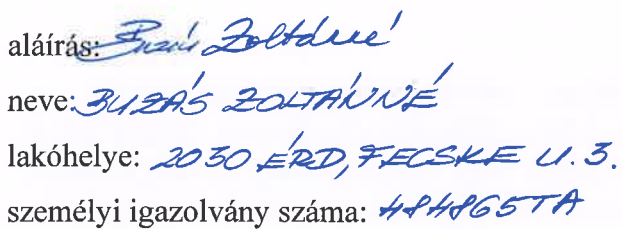 aláírás: Buzás Zoltánné
neve: BUZÁS ZOLTÁNNÉ
lakóhelye: 2030 ÉRD, FECSKE U. 3.
személyi igazolvány száma: 484865TA